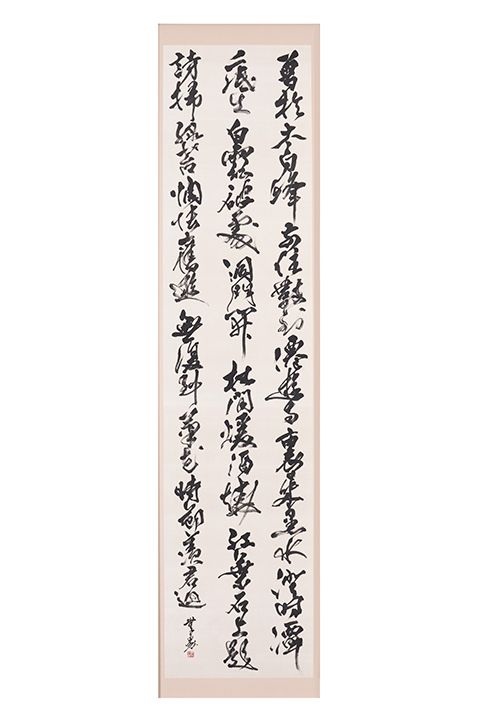 曾於太白峰前住數到僊遊寺裏來黑水澄時潭
底出白雲破處洞門開林間煖酒燒紅葉石上題
詩掃緑苔惆悵舊遊無復到菊花時節羨君迴